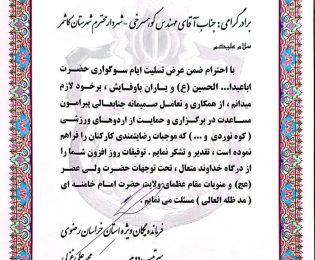 برادر گرامی؛ جناب آقای مهندس کوهسرخی - شهردار محترم شهرستان کاشمر
سلام علیکم
با احترام ضمن عرض تسلیت ایام سوگواری حضرت
اباعبدا... الحسین (ع) و یاران باوفایش ، برخود لازم
میدانم ، از همکاری و تعامل صمیمانه جنابعالی پیرامون
مساعدت در برگزاری و حمایت از اردوهای ورزشی
( کوه نوردی و ... ) که موجبات رضایتمندی کارکنان را فراهم
نموده است ، تقدیر و تشکر نمایم . توفیقات روز افزون شما را
از درگاه خداوند متعال ، تحت توجهات حضرت ولی عصر
(عج) و منویات مقام عظمای ولایت حضرت امام خامنه ای
( مد ظله العالی ) مسئلت می نمایم .
فرمانده یگان ویژه استان خراسان رضوی